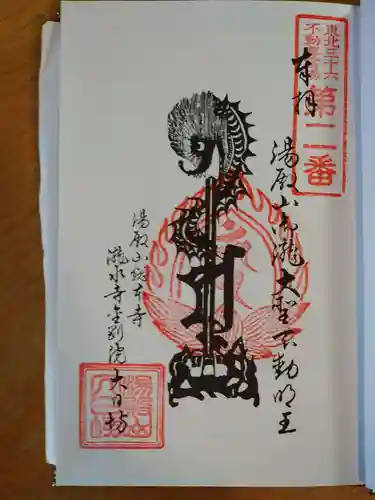 東北三十六
不動尊霊場
第二番
奉拝
湯殿山瀧大聖不動明王
湯殿山総本寺
瀧水寺金剛院
大日坊